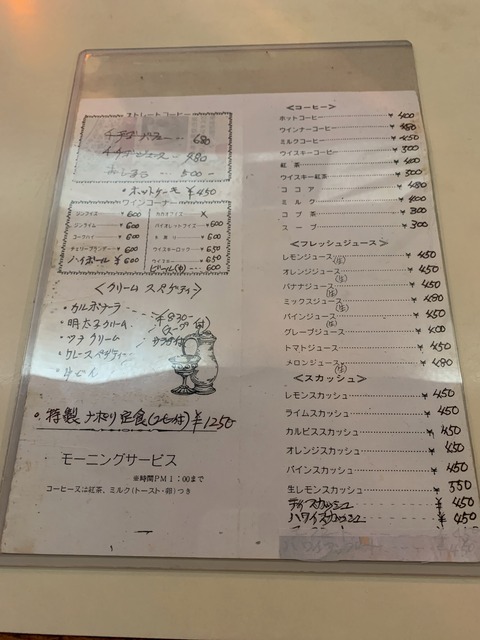 ストレートコーヒー
680
480
500
・ホットケーキ ¥450
ワインコーナー
ジンフィズ ¥600
ジンライム ¥600
コークハイ ¥600
チェリーブランデー ¥600
ハイボール ¥600
カカオフィズ ×
バイオレットフィズ ¥600
水割り ¥600
ウイスキーロック ¥650
ウイスキー ¥650
ビール(中) 600
＜クリーム スパゲティ＞
・カルボナーラ
・明太子クリーム
・ツナクリーム
・カレースパゲティー
¥830-
スープ付
サラダ付
・特製ナポリ定食(スープ付) ¥1250
モーニングサービス
※時間PM1：00まで
コーヒー又は紅茶、ミルク(トースト・卵)つき
＜コーヒー＞
ホットコーヒー ¥400
ウインナーコーヒー ¥450
ミルクコーヒー ¥450
ウイスキーコーヒー ¥500
紅茶 ¥400
ウイスキー紅茶 ¥500
ココア ¥480
ミルク ¥400
コブ茶 ¥300
スープ ¥300
＜フレッシュジュース＞
レモンジュース ¥450
オレンジジュース(生) ¥450
バナナジュース ¥450
ミックスジュース(生) ¥480
パインジュース ¥450
グレープジュース ¥400
トマトジュース ¥450
メロンジュース(生) ¥480
＜スカッシュ＞
レモンスカッシュ ¥450
ライムスカッシュ ¥450
カルピススカッシュ ¥450
オレンジスカッシュ ¥450
パインスカッシュ ¥450
生レモンスカッシュ ¥550
¥450
ハワイスカッシュ ¥450